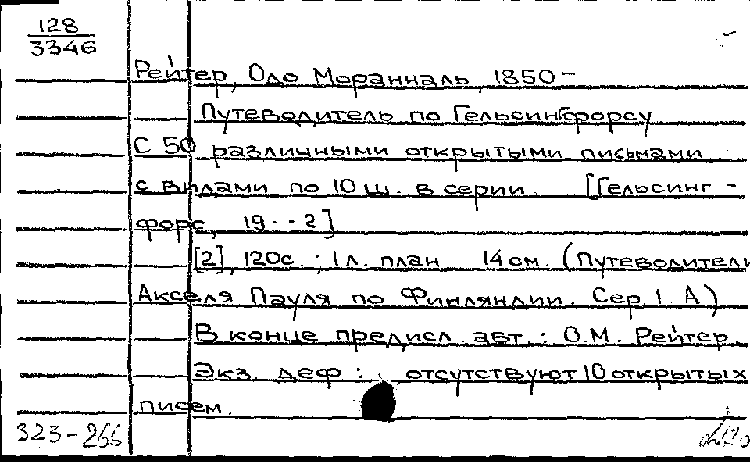 128
3346
Рейтер, Одо Моранналь, 1850-
Путеводитель по Гельсингфорсу
С 50 различными открытыми письмами
с видами по 10 ш. в серии. [Гельсинг-
форс, 19--?]
[2], 120с.; 1 л. план 14 см. (Путеводители
Акселя Пауля по Финляндии. Сер. 1. А)
В конце предисл авт.: О.М. Рейтер.
Экз. деф.: отсутствуют 10 открытых
писем.
323-266